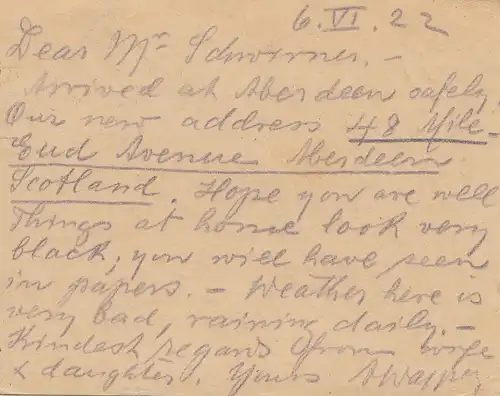 6.VI.22
Dear Mr Schwirner, -
Arrived at Aberdeen safely
Our new address 48 Mile-
End Avenue Aberdeen
Scotland. Hope you are well
Things at home look very
black; you will have seen
in papers. - Weather here is
very bad, raining daily. -
Kindest regards from
& daughter. Yours